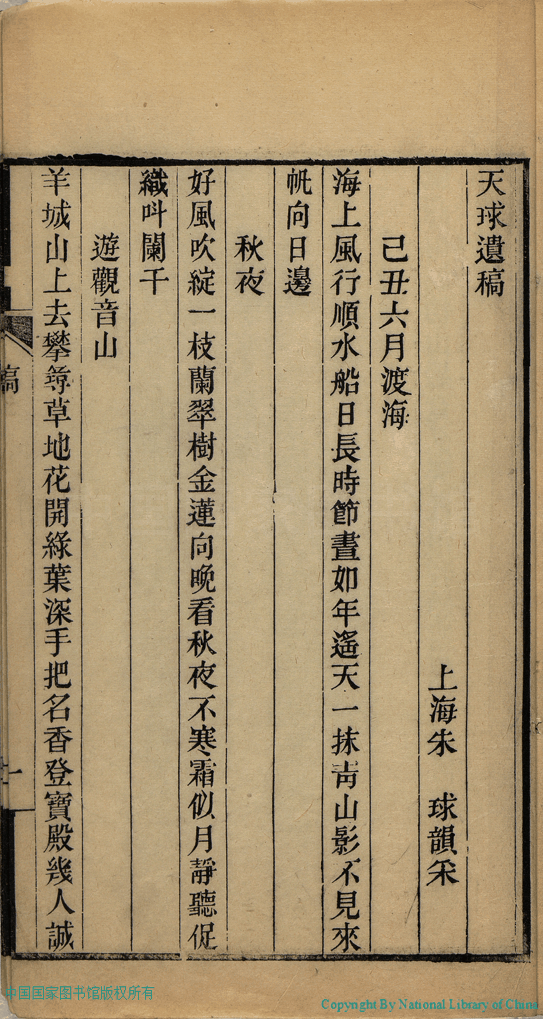 天球遺稿
上海朱　球韻采
己丑六月渡海
海上風行順水船日長時節晝如年遙天一抹靑山影不見來
帆向日邊
秋夜
好風吹綻一枝蘭翠樹金蓮向晚看秋夜不寒霜似月靜聽促
織叫闌干
遊觀音山
羊城山上去攀尋草地花開綠葉深手把名香登寶殿幾人誠
稿
一
中国国家图书馆版权所有
Copyright By National Library of China